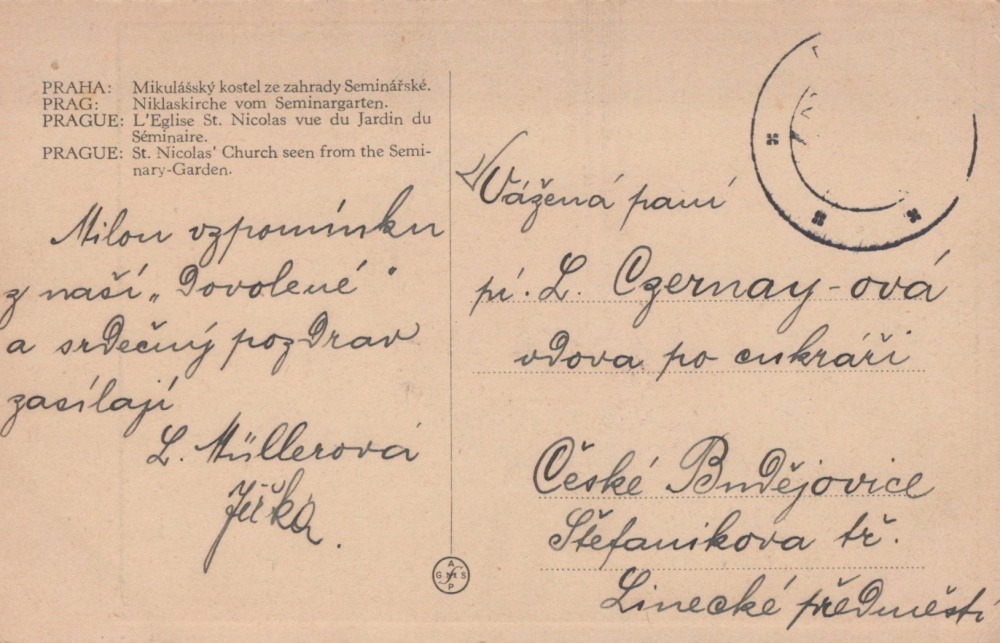 PRAHA: Mikulášský kostel ze zahrady Seminářské.
PRAG: Niklaskirche vom Seminargarten.
PRAGUE: L'Eglise St. Nicolas vue du Jardin du
Séminaire.
PRAGUE: St. Nicolas' Church seen from the Semi-
nary-Garden.
Milou vzpomínku
z naší „Dovolené"
a srdečný pozdrav
zasílají
L. Müllerová
Jiřka.
Vážená paní
pí. L. Czernay-ová
vdova po cukráři
České Budějovice
Štefanikova tř.
Linecké předměstí